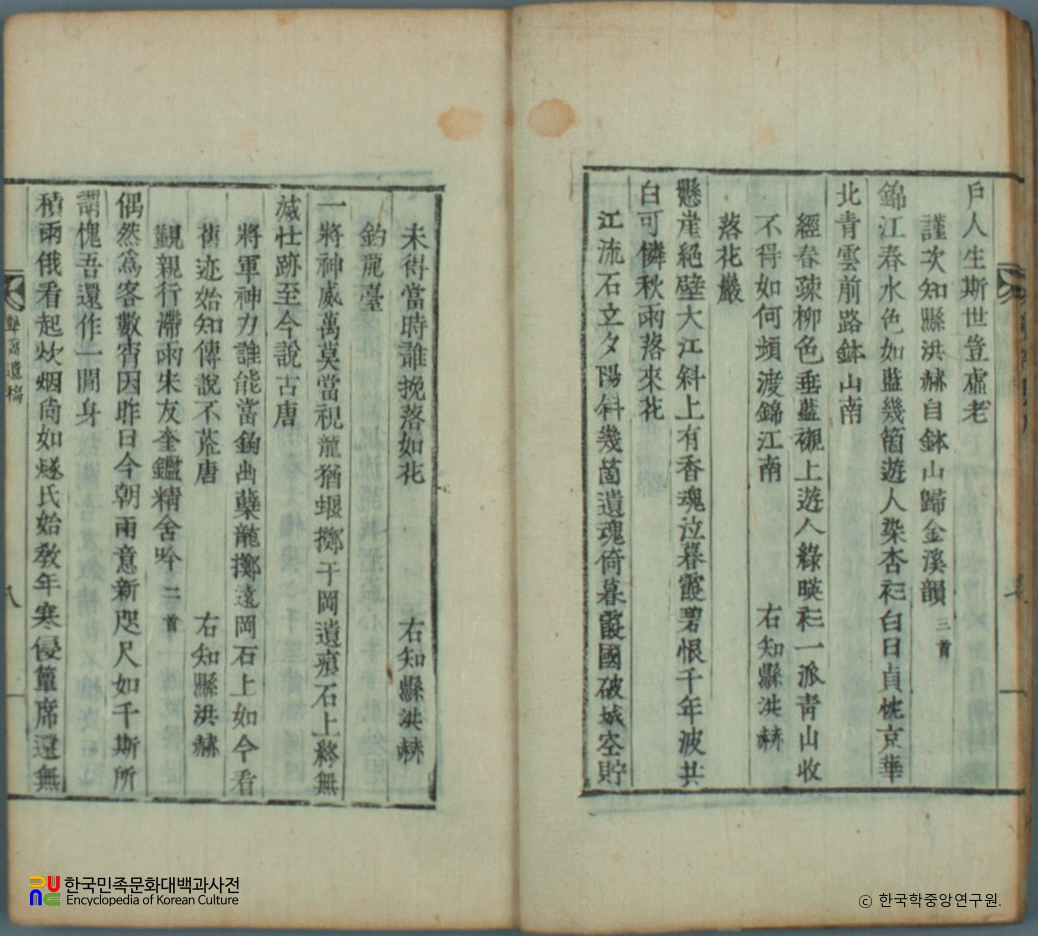 戶人生斯世豈虛老
謹次知縣洪赫自鉢山歸金溪韻 三首
錦江春水色如藍幾箇遊人染杏衫白日貞忱京華
北青雲前路鉢山南
經春疎柳色垂藍襯上遊人綠暎衫一派青山收
不得如何頻渡錦江南
右知縣洪赫
落花巖
懸崖絕壁大江斜上有香魂泣暮霞碧恨千年波共
白可憐秋雨落來花
江流石立夕陽斜幾箇遺魂倚暮霞國破城空貯
未得當時誰挽落如花
右知縣洪赫
釣龍臺
一將神威萬莫當視龍猶蝘擲干岡遺痕石上終無
滅壯跡至今說古唐
將軍神力誰能當釣出孽龍擲遠岡石上如今看
舊迹始知傳說不荒唐
右知縣洪赫
覲親行滯雨宋友奎鑑精舍吟 二首
偶然爲客數宵因昨日今朝雨意新咫尺如千斯所
謂愧吾還作一閒身
積雨俄看起炊烟尙如燧氏始敎年寒侵簟席還無
遺稿
八
한국민족문화대백과사전
Encyclopedia of Korean Culture
© 한국학중앙연구원.